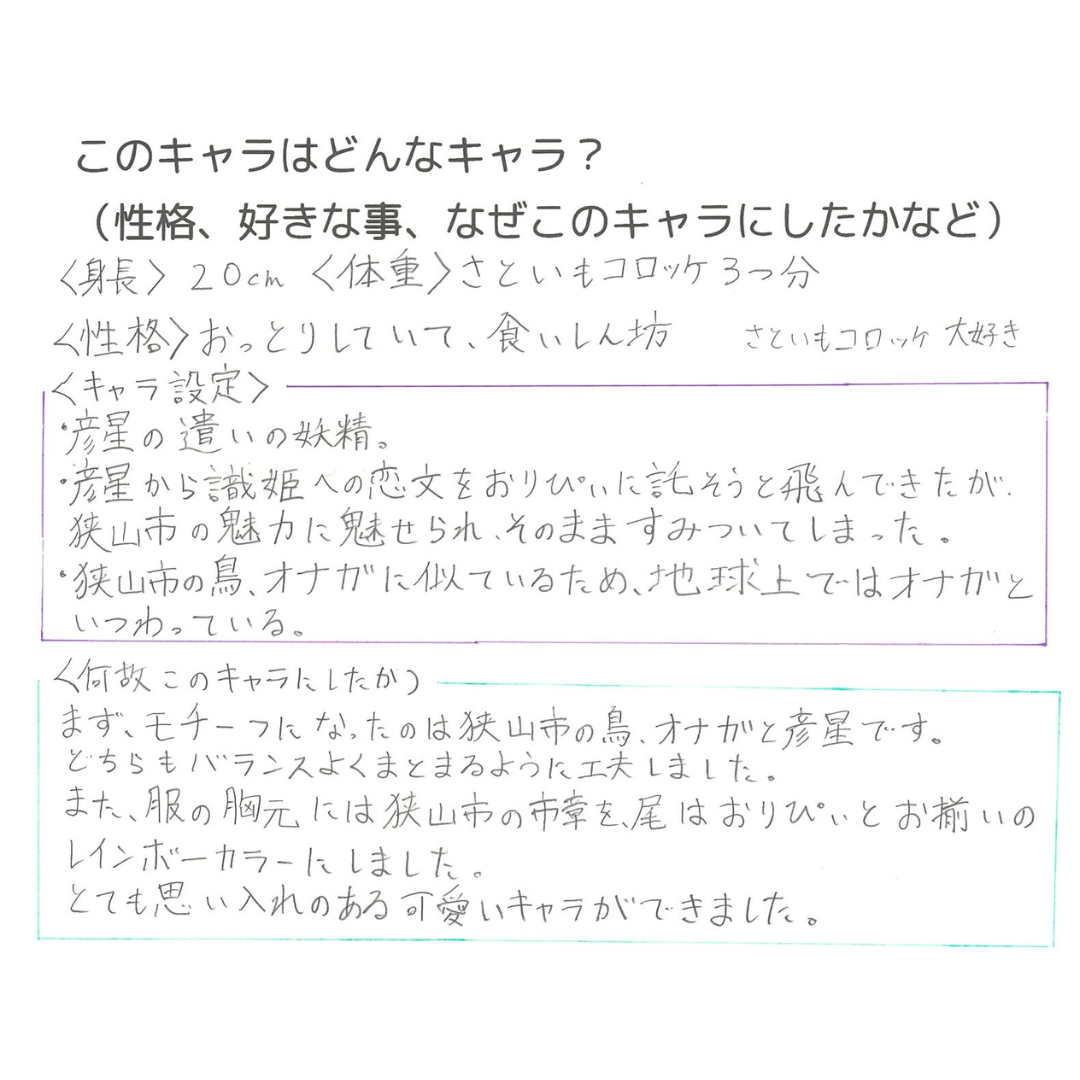 このキャラはどんなキャラ？
（性格、好きな事、なぜこのキャラにしたかなど）
〈身長〉20cm〈体重〉さといもコロッケ3つ分
〈性格〉おっとりしていて、食いしん坊　さといもコロッケ大好き
〈キャラ設定〉
・彦星の遣いの妖精。
・彦星から識姫への恋文をおりぴぃに託そうと飛んできたが、
狭山市の魅力に魅せられ、そのまますみついてしまった。
・狭山市の鳥、オナガに似ているため、地球上ではオナガと
いつわっている。
〈何故このキャラにしたか〉
まず、モチーフになったのは狭山市の鳥、オナガと彦星です。
どちらもバランスよくまとまるように工夫しました。
また、服の胸元には狭山市の市章を、尾はおりぴぃとお揃いの
レインボーカラーにしました。
とても思い入れのある可愛いキャラができました。